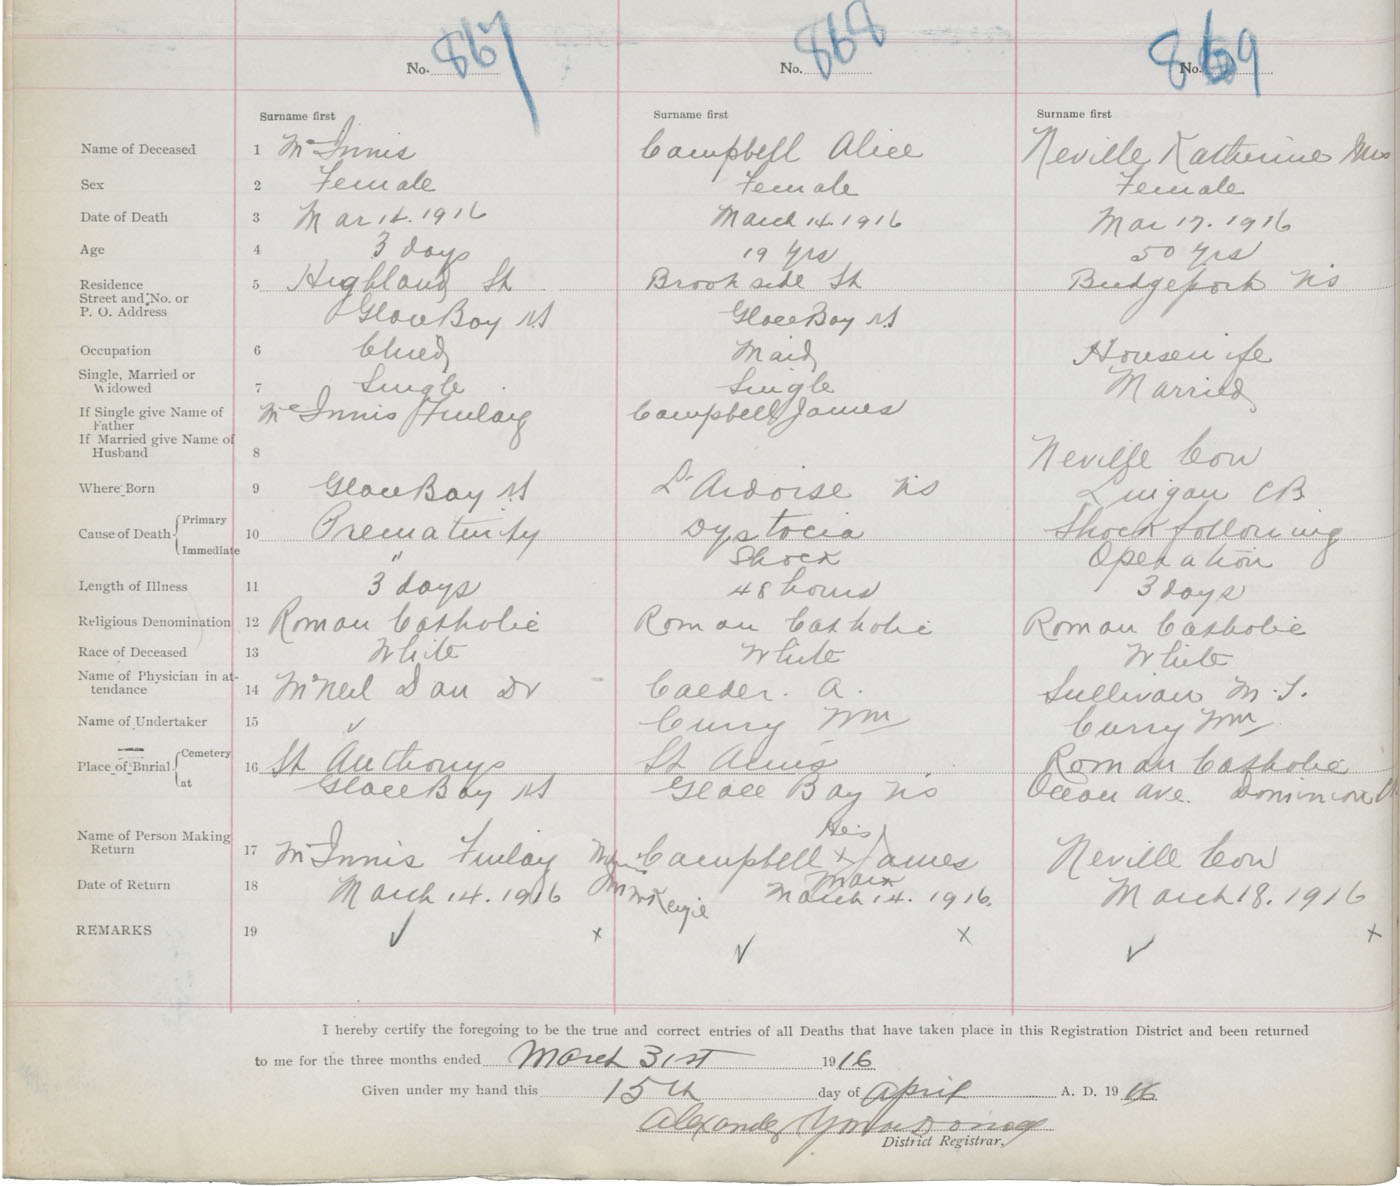 No. 867 No. 868 No. 869
Surname first Surname first Surname first
Name of Deceased 1 Mc Innis Campbell Alice Neville Katherine Mrs
Sex 2 Female Female Female
Date of Death 3 Mar 14. 1916 March 14. 1916 Mar 17. 1916
Age 4 3 days 19 yrs 50 yrs
Residence 5 Highland St Brookside St Bridgeport NS
Street and No. or
P. O. Address Glace Bay NS Glace Bay NS
Occupation 6 Child Maid Housewife
Single, Married or
Widowed 7 Single Single Married
If Single give Name of Mc Innis Finlay Campbell James
Father
If Married give Name of
Husband 8 Neville Con
Where Born 9 Glace Bay NS L'Ardoise NS Lingan CB
Cause of Death { Primary 10 Prematurity Dystocia Shock following
Immediate " Shock Operation
Length of Illness 11 3 days 48 hours 3 days
Religious Denomination 12 Roman Catholic Roman Catholic Roman Catholic
Race of Deceased 13 White White White
Name of Physician in at-
tendance 14 McNeil Dan Dr Calder. A. Sullivan M. T.
Name of Undertaker 15 ✓ Curry Wm Curry Wm
Place of Burial { Cemetery 16 St Anthonys St Anns Roman Catholic
at Glace Bay NS Glace Bay NS Ocean Ave. Dominion
Name of Person Making His
Return 17 McInnis Finlay Campbell x James Neville Con
Mark
Date of Return 18 March 14. 1916 McKenzie March 14. 1916. March 18. 1916
REMARKS 19 ✓ x ✓ x ✓ x
I hereby certify the foregoing to be the true and correct entries of all Deaths that have taken place in this Registration District and been returned
to me for the three months ended March 31st 1916
Given under my hand this 15th day of April A. D. 1916
Alexander
District Registrar.